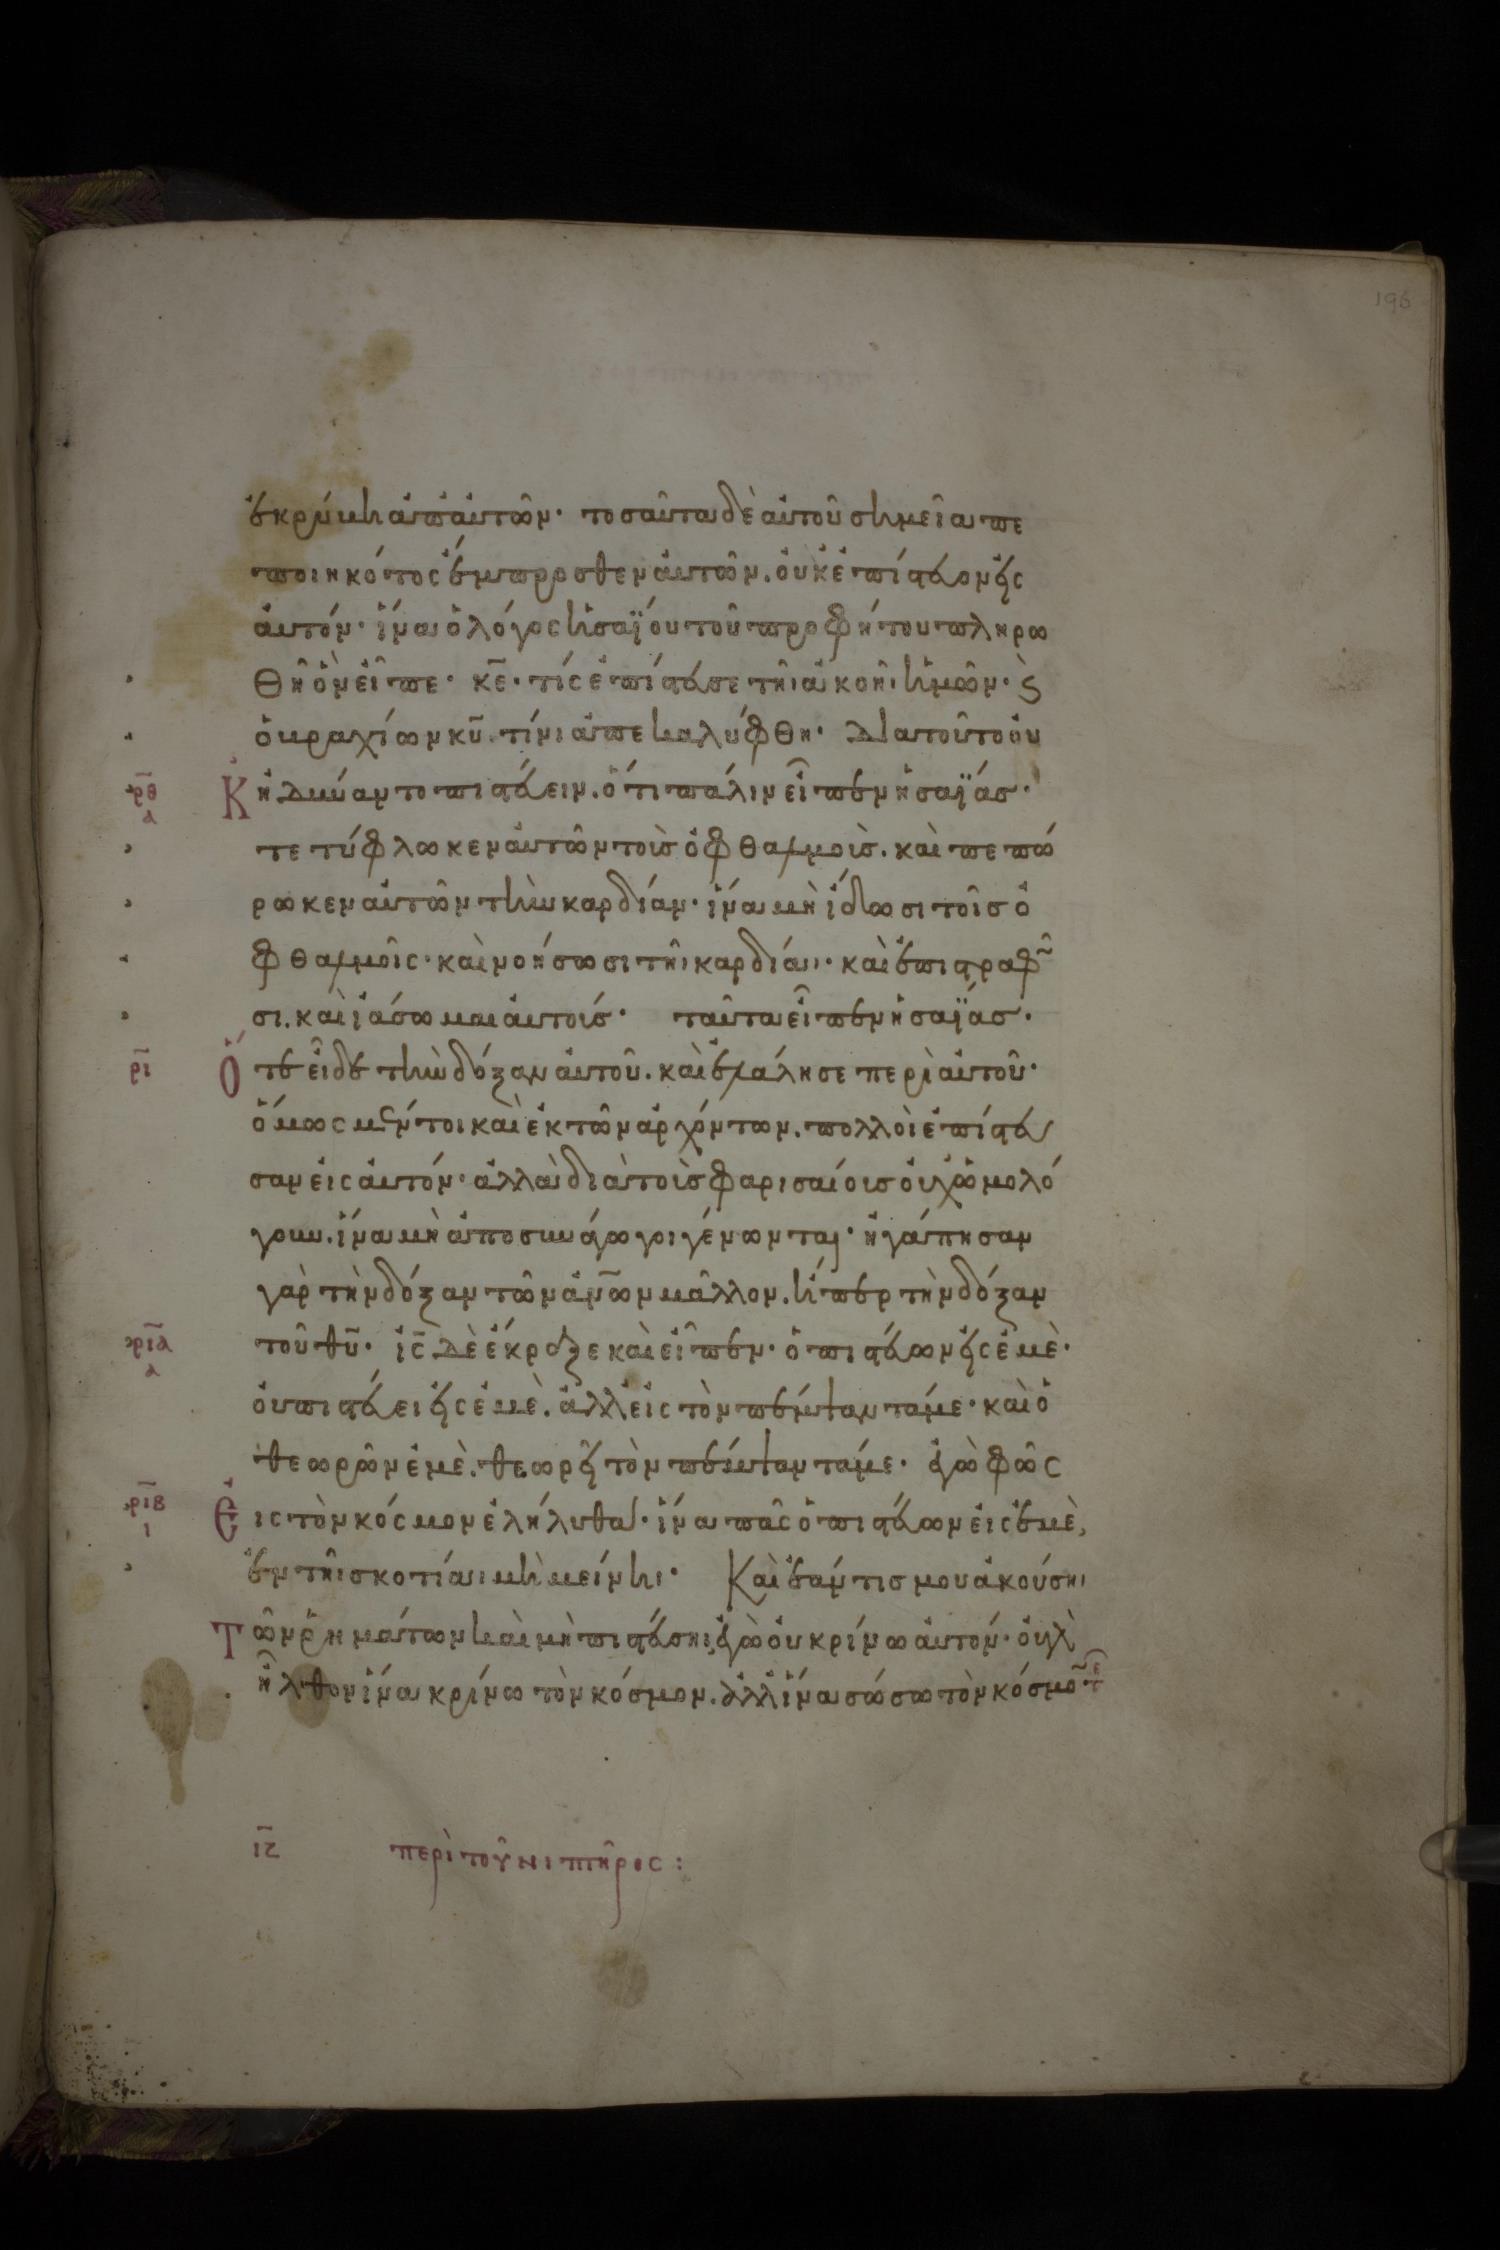 196
ἐκρύβη ἀπ' αὐτῶν· τοσαῦτα δὲ αὐτοῦ σημεῖα πε
ποιηκότος ἔμπροσθεν αὐτῶν. οὐκ ἐπίστευον εἰς
αὐτόν· ἵνα ὁ λόγος ἡσαΐου τοῦ προφήτου πληρω
θῆ ὃν εἶπε· κε̄· τίς ἐπίστευσε τῆι ἀκοῆι ἡμῶν· ϗ̀
ὁ βραχίων κῡ. τίνι ἀπεκαλύφθη· Διατοῦτο οὐ
ρ̄θ̄ α
Κ ηδύναντο πιστεύειν. ὅτι πάλιν εἶπεν ἠσαΐας·
τετύφλωκεν αὐτῶν τοὺς ὀφθαλμοὺς. καὶ πεπώ
ρωκεν αὐτῶν τὴν καρδίαν· ἵνα μὴ ἴδωσι τοῖς ὀ
φθαλμοῖς· καὶ νοήσωσι τῆι καρδίαι· καὶ ἐπιστραφῶ
σι. καὶ ἰάσωμαι αὐτούς· ταῦτα εἶπεν ἠσαΐας·
ρ̄ῑ
Ὅ τε εἶδε τὴν δόξαν αὐτοῦ. καὶ ἐλάλησε περὶ αὐτοῦ·
ὅμως μέντοι καὶ ἐκ τῶν ἀρχόντων. πολλοὶ ἐπίστευ
σαν εἰς αὐτόν· ἀλλὰ διὰ τοὺς φαρισαίους οὐχ ὡμολό
γουν. ἵνα μὴ ἀποσυνάγωγοι γένωνται· ἠγάπησαν
γὰρ τὴν δόξαν τῶν ἀν̄ων μᾶλλον. ἤπερ τὴν δόξαν
ρ̄ῑᾱ α
τοῦ θῡ· ἰς̄ δὲ ἔκραξε καὶ εἶπεν· ὁ πιστεύων εἰς ἐμὲ·
οὐ πιστεύει εἰς ἐμὲ. ἀλλ' εἰς τὸν πέμψαντά με· καὶ ὁ
θεωρῶν ἐμὲ. θεωρεῖ τὸν πέμψαντά με· ἐγὼ φῶς
ρ̄ῑβ̄ ι
Ἐ ις τὸν κόσμον ἐλήλυθα· ἵνα πᾶς ὁ πιστεύων εἰς ἐμὲ,
ἐν τῆι σκοτίαι μὴ μείνηι· Καὶ ἐάν τις μου ἀκούσηι
Τ ῶν ῥημάτων καὶ μὴ πιστεύσηι, ἐγὼ οὐ κρίνω αὐτόν· οὐ γὰρ
ἦλθον ἵνα κρίνω τὸν κόσμον. ἀλλ' ἵνα σώσω τὸν κόσμο̄·
ῑς̄ περὶ τοῦ νιπτῆρος: